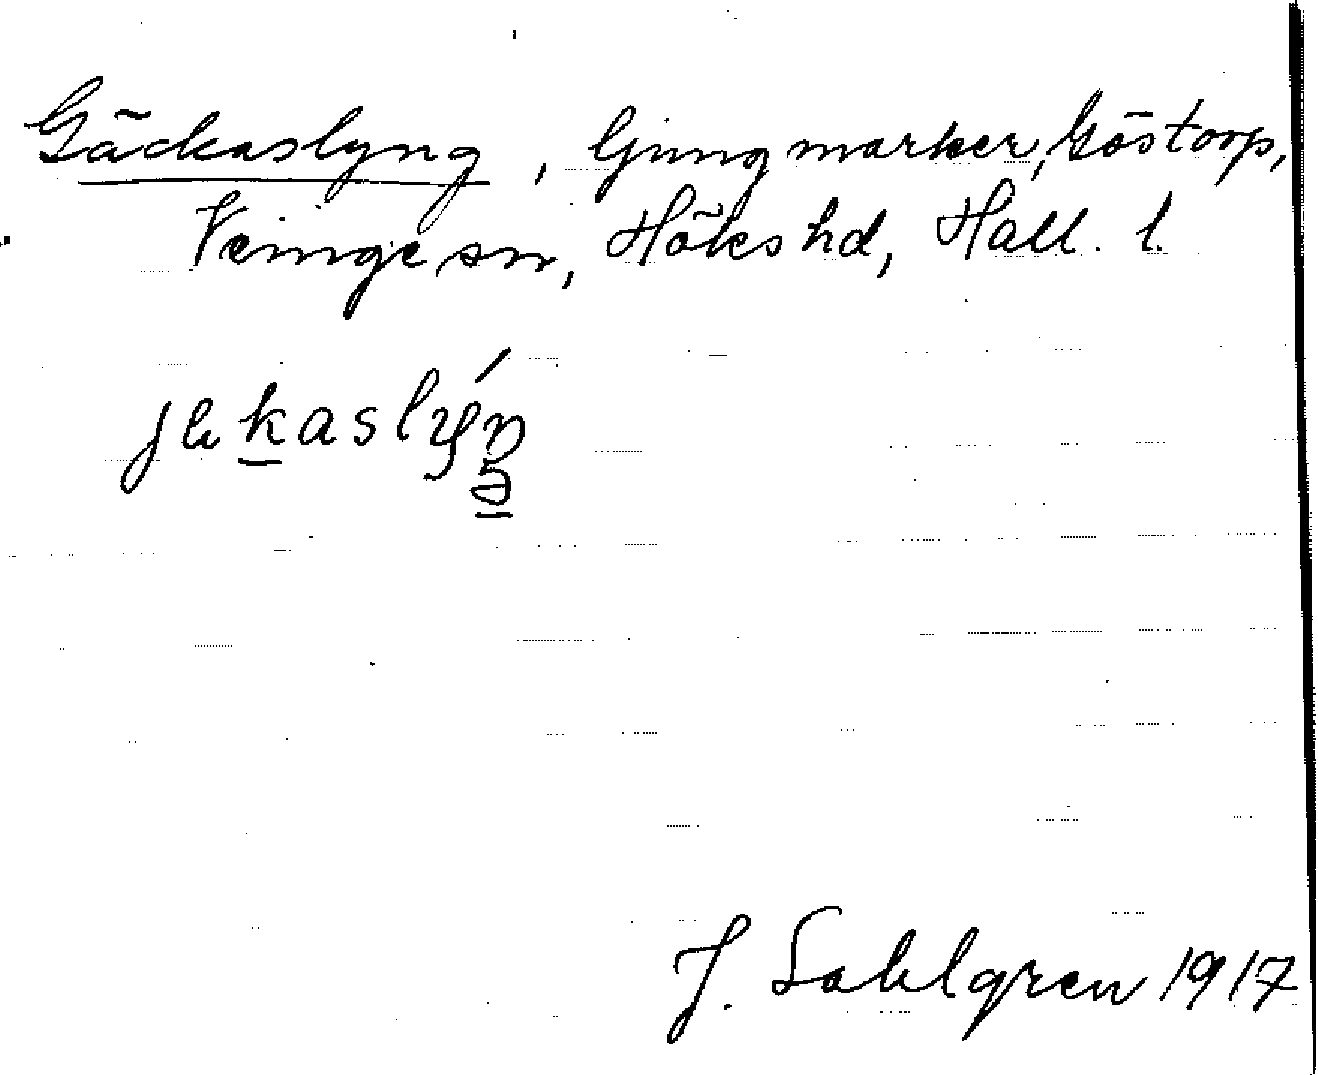 Gäckaslyng, ljungmarker, Göstorp,
Veinge sn, Höks hd, Hall. l.
J. Sahlgren 1917